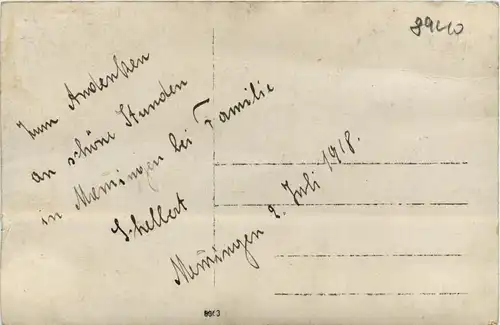 89410
Zum Andenken
an schöne Stunden
in Memingen bei Familie
Schellert
Memingen 2. Juli 1918.
8963